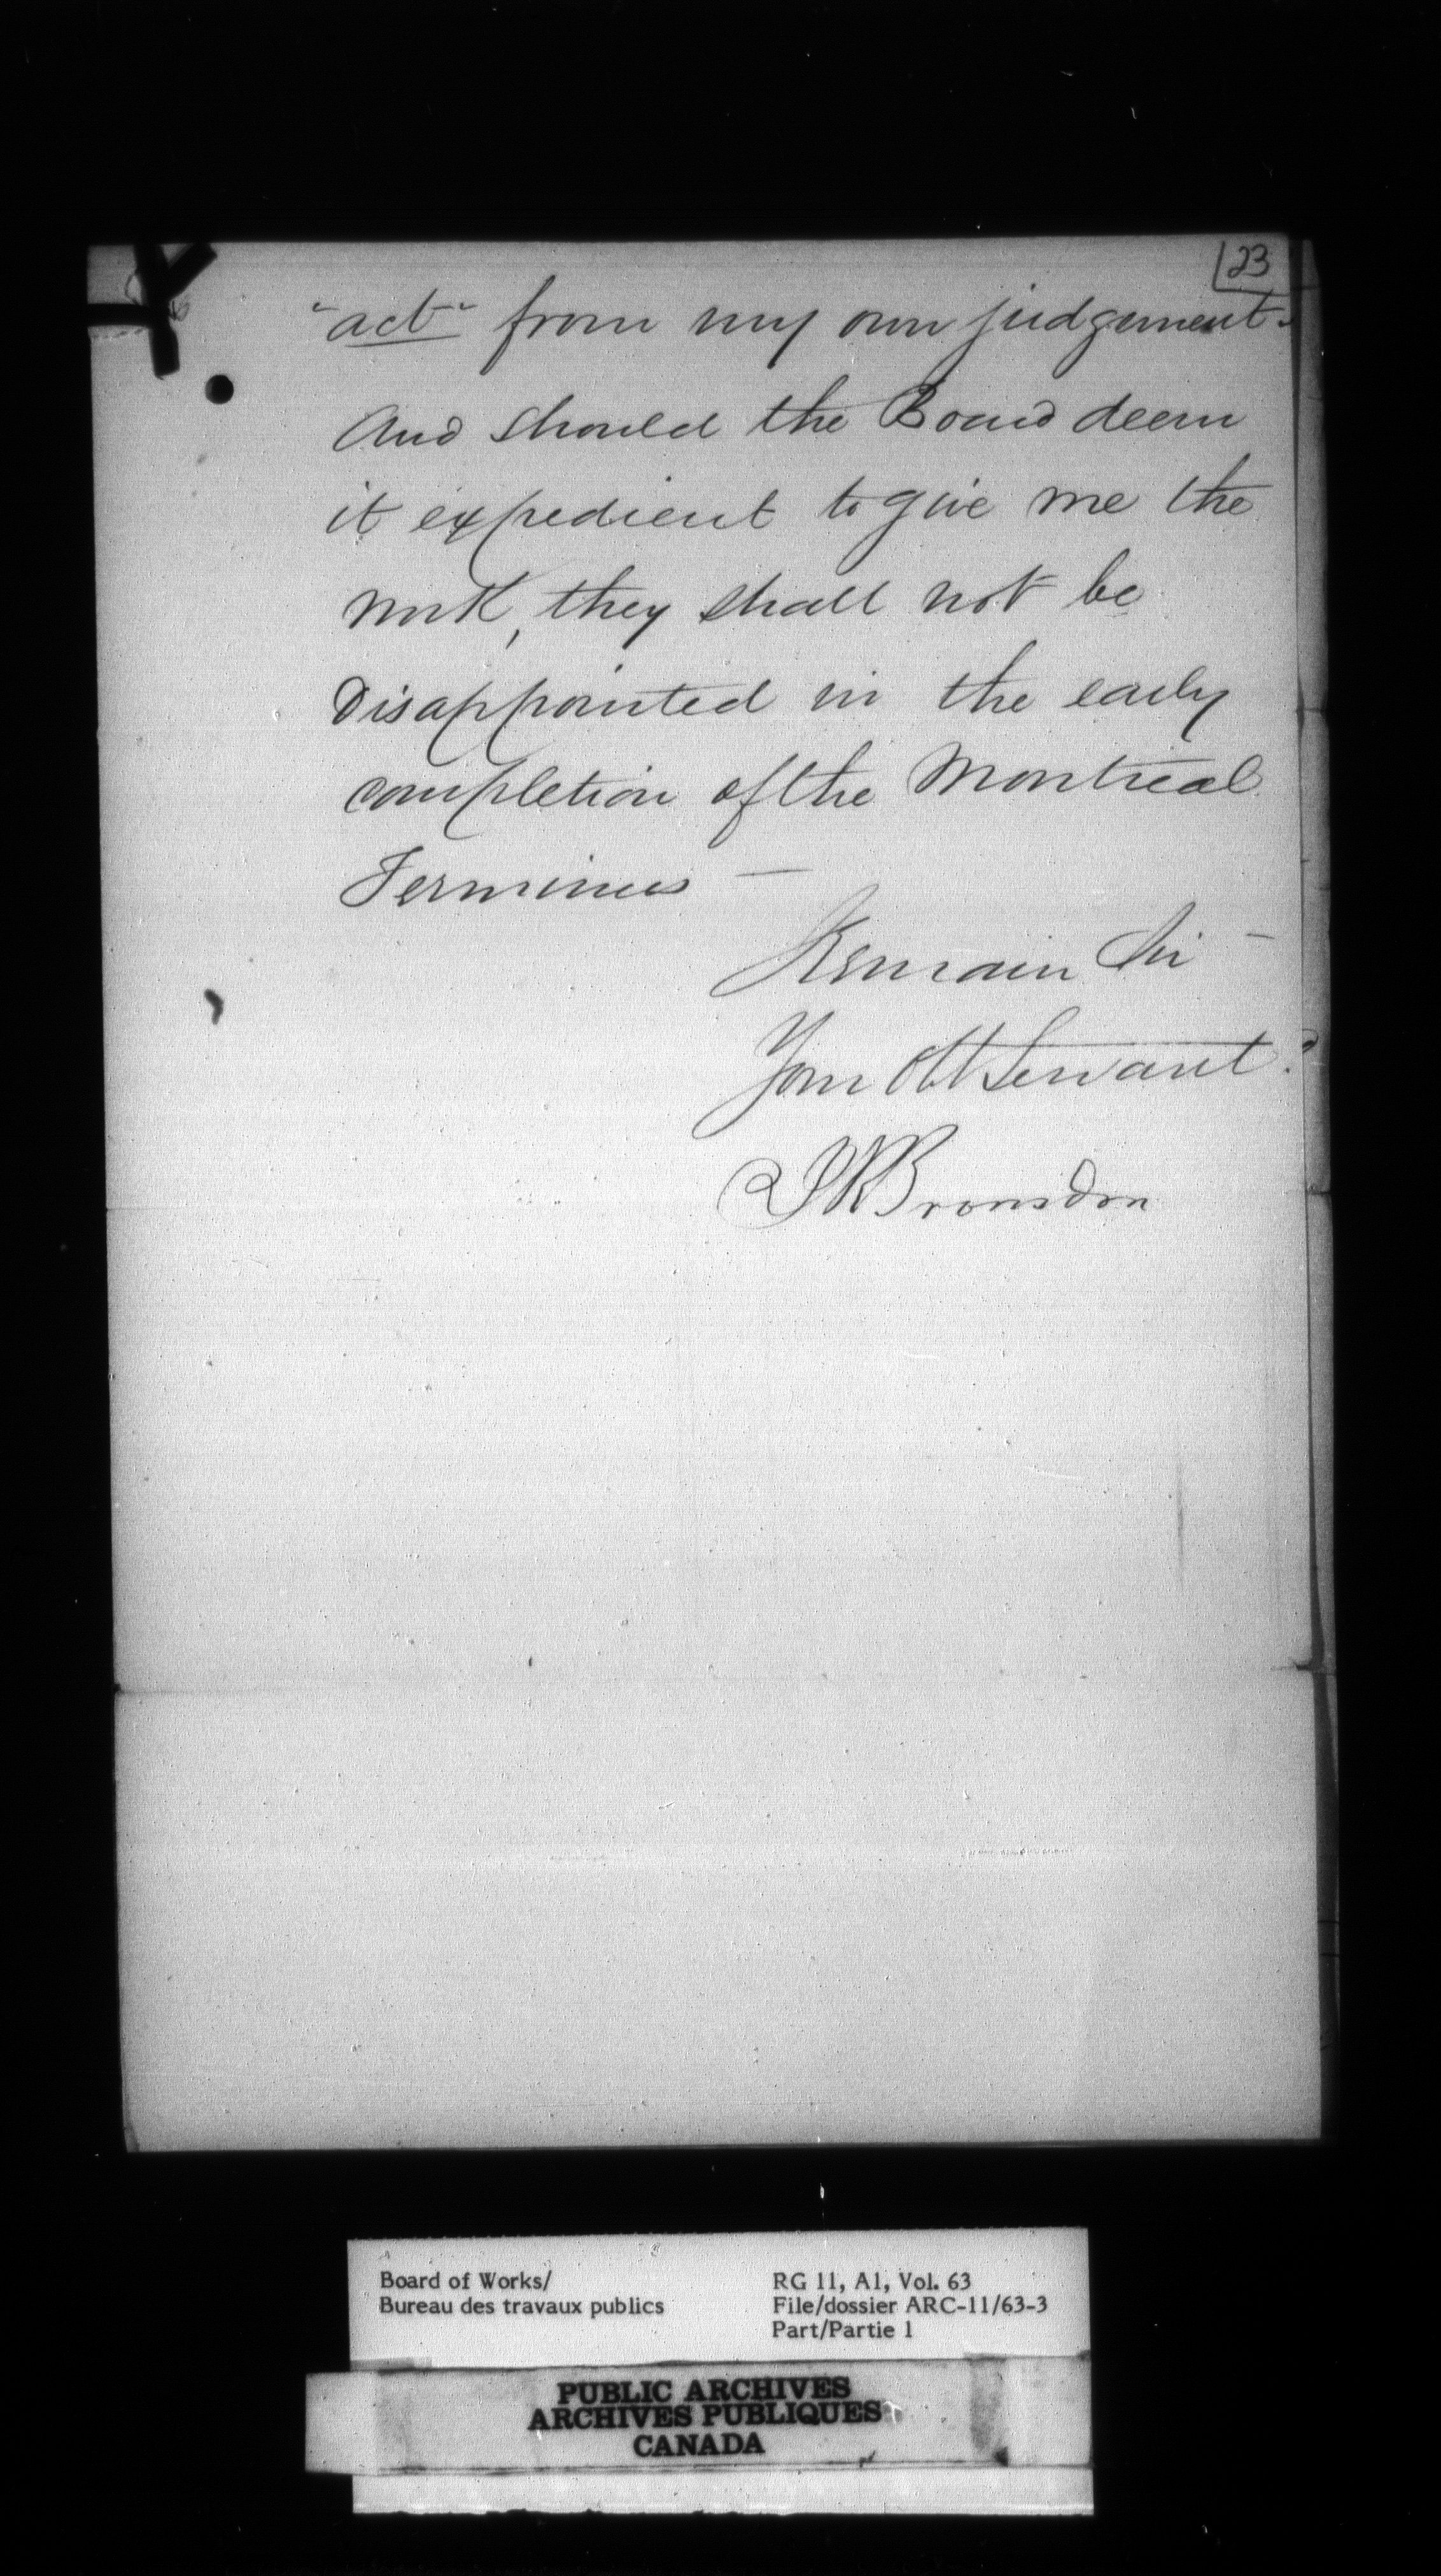 23
"act" from my own judgement.
And should the Board deem
it expedient to give me the
work, they shall not be
Disappointed in the early
completion of the Montreal
Terminus —
Remain Sir —
Your Obt Servant.
JR Bronsdon
Board of Works/
Bureau des travaux publics
RG 11, A1, Vol. 63
File/dossier ARC-11/63-3
Part/Partie 1
PUBLIC ARCHIVES
ARCHIVES PUBLIQUES
CANADA